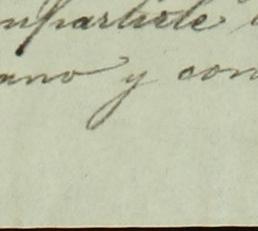 mpartirle
ano y con